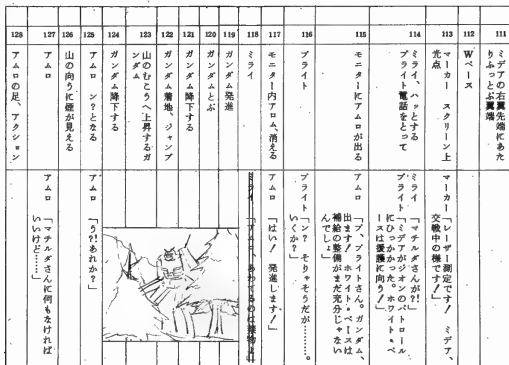 111
ミデアの右翼先端にあた
りふっとぶ翼端
112
Wベース
113
マーカー スクリーン上
光点
マーカー「レーザー測定です! ミデア、
交戦中の様です!」
114
ミライ、ハッとする
ブライト電話をとって
ミライ「マチルダさんが?!」
ブライト「ミデアがジオンのパトロール
にひっかかった。ホワイト・ベ
ースは援護に向う!」
115
モニターにアムロが出る
アムロ「ブ、ブライトさん。ガンダム、
出ます! ホワイト・ベースは
補給の整備がまだ充分じゃない
んでしょ」
116
ブライト
ブライト「ン? そりゃそうだが………。
いくか?」
117
モニター内アロム、消える
アムロ「はい! 発進します!」
118
ミライ
ミライ「アムロ、あわてるのは禁物よ」
119
ガンダム発進
120
ガンダムとぶ
121
ガンダム降下する
122
ガンダム着地、ジャンプ
123
山のむこうへ上昇するガ
ンダム
124
ガンダム降下する
125
アムロ ン?となる
アムロ「う?!あれか?」
126
山の向うに煙が見える
127
アムロ
アムロ「マチルダさんに何もなければ
いいけど……」
128
アムロの足、アクション